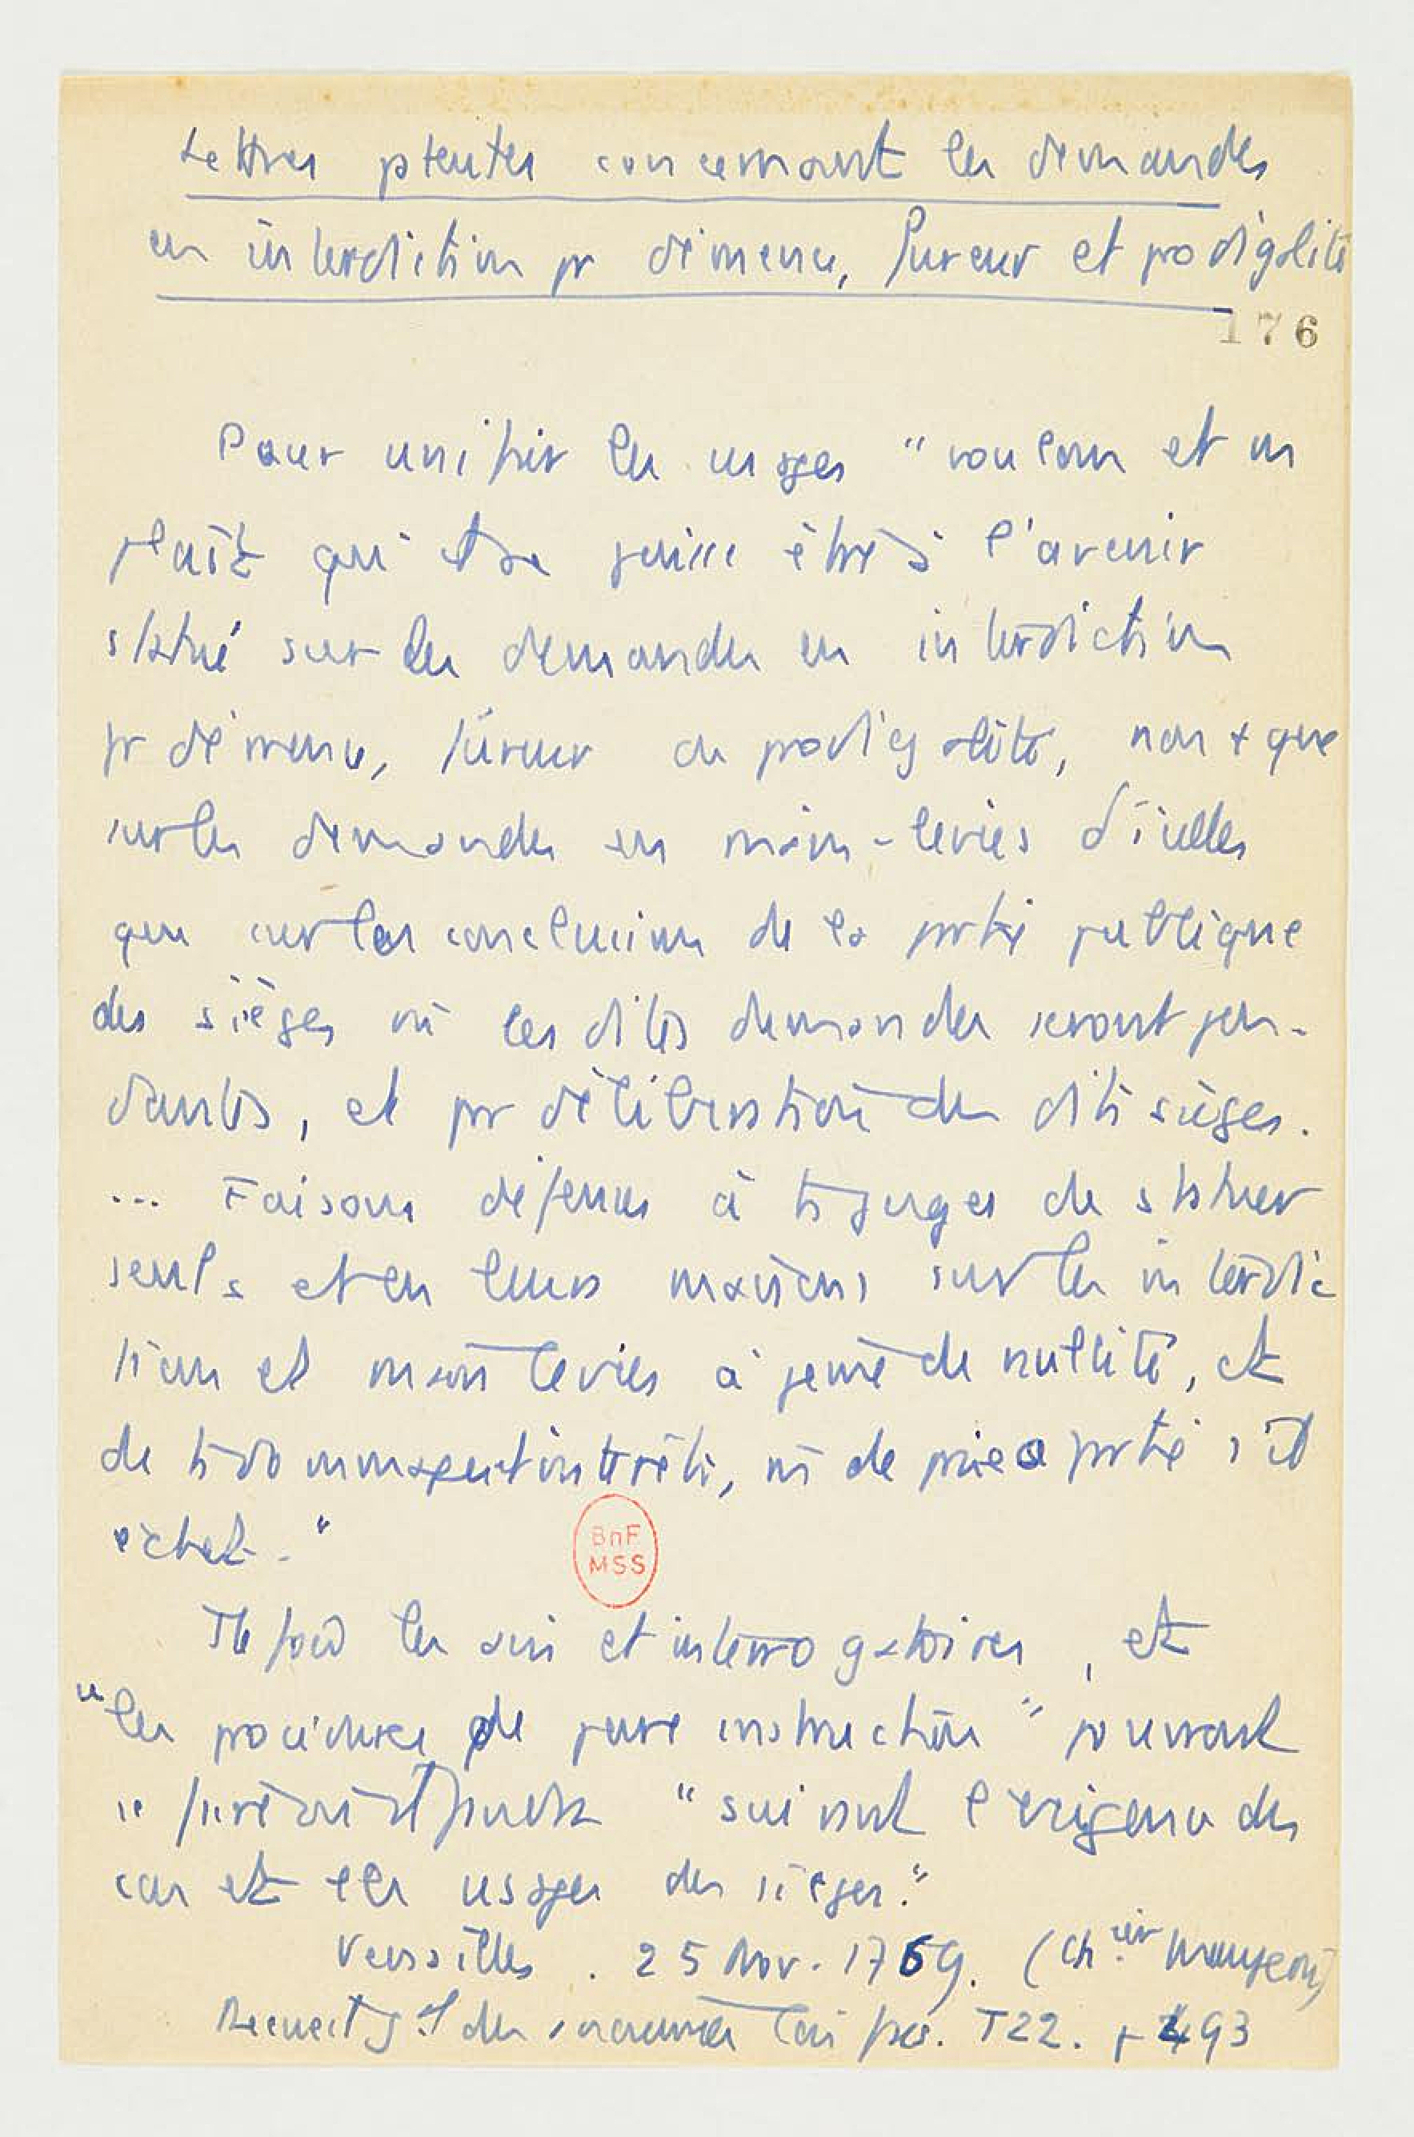 Lettres ptentes concernant les demandes
en interdiction pr démence, fureur et prodigalité
176
Pour unifier les usages "voulons et ns
plaît qu'il ne puisse être à l'avenir
statué sur les demandes en interdiction
pr démence, fureur ou prodigalité, non + que
sur les demandes en main-levées d'icelles
que sur les conclusions de la partie publique
des sièges où les dites demandes seront pen-
dantes, et par délibération des dits sièges.
... Faisons défenses à ts juges de statuer
seuls et en leurs maisons sur les interdic
tions et main levées à peine de nullité, et
de ts dommages et intérêts, de prise à partie s'il
échet."
BnF
MSS
les avis et interrogatoires, et
"les procédures de pure instruction" pouvant
"suivant l'exigence des
cas et les usages des sièges."
Versailles. 25 Nov. 1769. (Chcier Maupeou)
Recueil gal des anciennes lois frses. T22. p 493